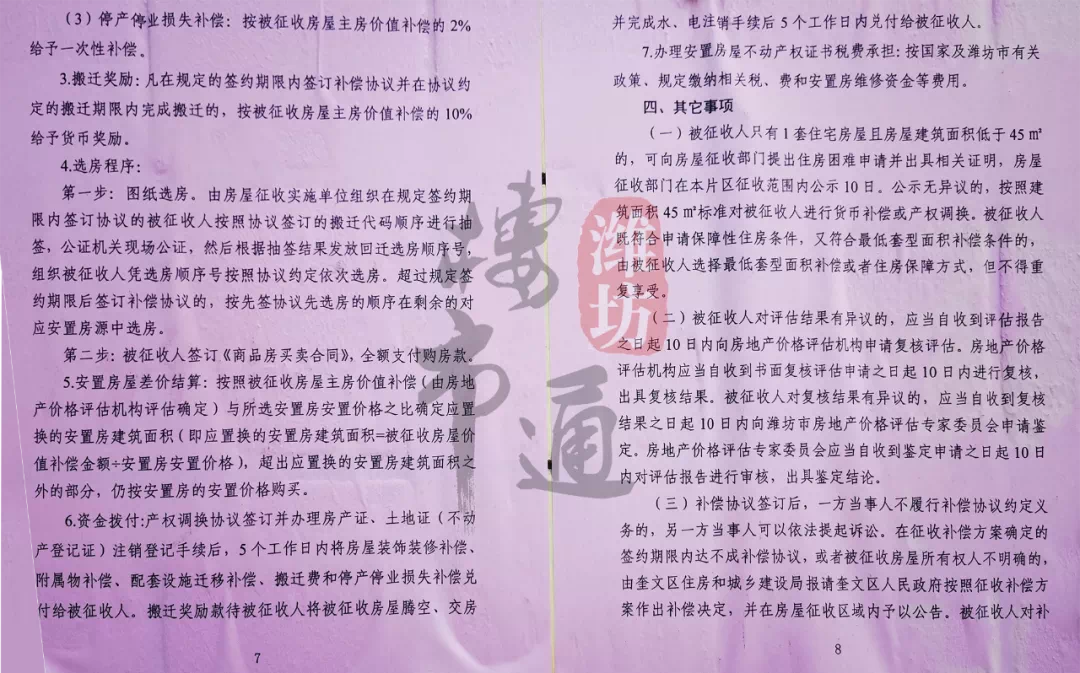 （3）停产停业损失补偿：按被征收房屋主房价值补偿的2%
给予一次性补偿。
3.搬迁奖励：凡在规定的签约期限内签订补偿协议并在协议约
定的搬迁期限内完成搬迁的，按被征收房屋主房价值补偿的10%
给予货币奖励。
4.选房程序：
第一步：图纸选房。由房屋征收实施单位组织在规定签约期
限内签订协议的被征收人按照协议签订的搬迁代码顺序进行抽
签，公证机关现场公证，然后根据抽签结果发放回迁选房顺序号，
组织被征收人凭选房顺序号按照协议约定依次选房。超过规定签
约期限后签订补偿协议的，按先签协议先选房的顺序在剩余的对
应安置房源中选房。
第二步：被征收人签订《商品房买卖合同》，全额支付购房款。
5.安置房屋差价结算：按照被征收房屋主房价值补偿（由房地
产价格评估机构评估确定）与所选安置房安置价格之比确定应置
换的安置房建筑面积（即应置换的安置房建筑面积=被征收房屋价
值补偿金额÷安置房安置价格），超出应置换的安置房建筑面积之
外的部分，仍按安置房的安置价格购买。
6.资金拨付：产权调换协议签订并办理房产证、土地证（不动
产登记证）注销登记手续后，5个工作日内将房屋装饰装修补偿、
附属物补偿、配套设施迁移补偿、搬迁费和停产停业损失补偿兑
付给被征收人。搬迁奖励款待被征收人将被征收房屋腾空、交房
7
并完成水、电注销手续后5个工作日内兑付给被征收人。
7.办理安置房屋不动产权证书税费承担：按国家及潍坊市有关
政策、规定缴纳相关税、费和安置房维修资金等费用。
四、其它事项
（一）被征收人只有1套住宅房屋且房屋建筑面积低于45㎡
的，可向房屋征收部门提出住房困难申请并出具相关证明，房屋
征收部门在本片区征收范围内公示10日。公示无异议的，按照建
筑面积45㎡标准对被征收人进行货币补偿或产权调换。被征收人
既符合申请保障性住房条件，又符合最低套型面积补偿条件的，
由被征收人选择最低套型面积补偿或者住房保障方式，但不得重
复享受。
（二）被征收人对评估结果有异议的，应当自收到评估报告
之日起10日内向房地产价格评估机构申请复核评估。房地产价格
评估机构应当自收到书面复核评估申请之日起10日内进行复核，
出具复核结果。被征收人对复核结果有异议的，应当自收到复核
结果之日起10日内向潍坊市房地产价格评估专家委员会申请鉴
定。房地产价格评估专家委员会应当自收到鉴定申请之日起10日
内对评估报告进行审核，出具鉴定结论。
（三）补偿协议签订后，一方当事人不履行补偿协议约定义
务的，另一方当事人可以依法提起诉讼。在征收补偿方案确定的
签约期限内达不成补偿协议，或者被征收房屋所有权人不明确的，
由奎文区住房和城乡建设局报请奎文区人民政府按照征收补偿方
案作出补偿决定，并在房屋征收区域内予以公告。被征收人对补
8
潍坊
楼市通